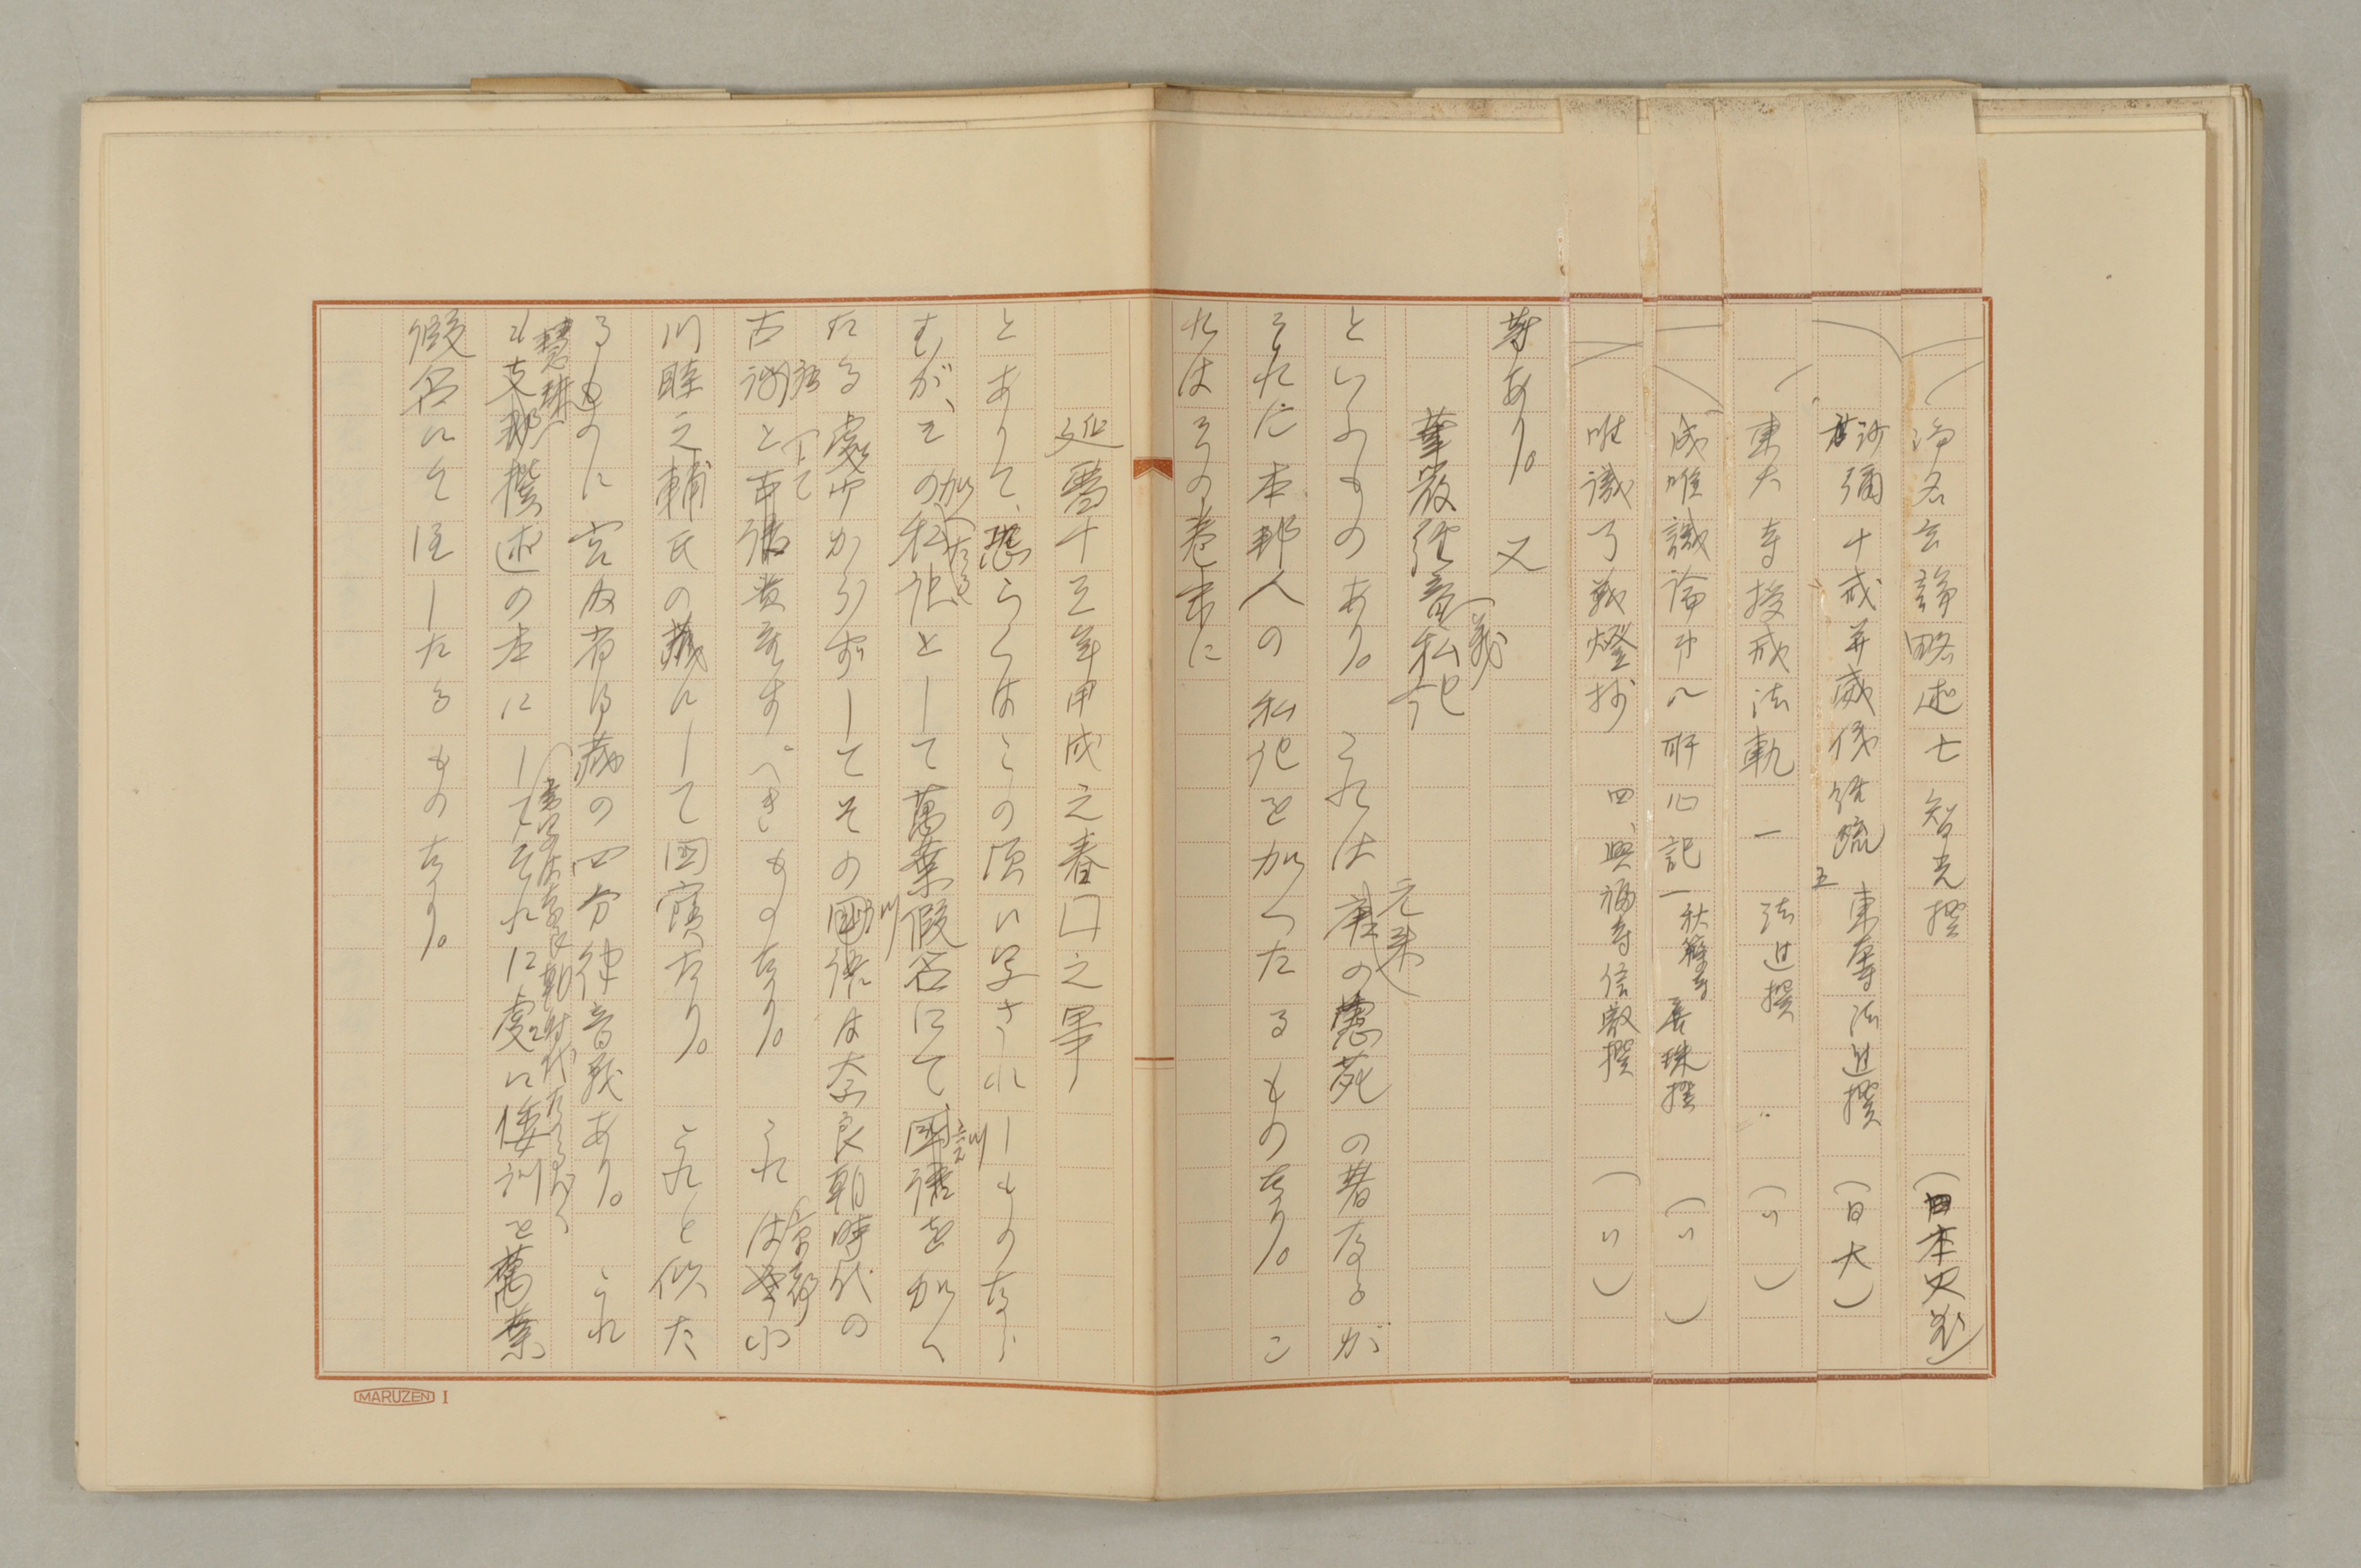 浄名玄論略述七 智光撰 (日本大蔵)
沙彌十戒并威儀経疏 五 東大寺法進撰 (日大)
東大寺授戒法軌 一 法進撰 (〃)
成唯識論 所 記 一 秋篠寺善珠撰 (〃)
唯識了義燈抄 四 興福寺信叡撰 (〃)
等あり。 又
華厳経音義私記
といふものあり。 これは元来唐の慧苑の著なるが
それに本邦人の私記を加へたるものなり。 こ
れはその巻末に
延暦十三年甲戌之春 之畢
とありて、恐らくはこの頃に写されしものなら
むが、その加へたる私記として萬葉假名にて国語を加へ
たる處少からずしてその国語は奈良朝時代の
古語として貴重すべきものなり。 これは京都小
川睦之輔氏の蔵にして国寶なり。 これと似た
るものに宮内省御蔵の四分律音義あり。 これ
も支那撰述の本にして、それに處々に倭訓を萬葉
假名にて注したるものなり。
MARUZEN I